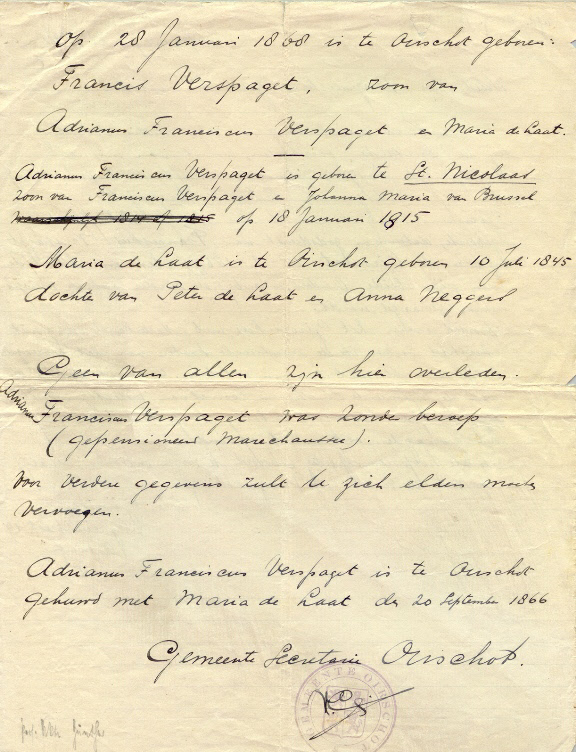 Op 28 Januari 1868 is te Oirschot geboren:
Francis Verspaget, zoon van
Adrianus Franciscus Verspaget en Maria de Laat.
Adrianus Franciscus Verspaget is geboren te St. Nicolaas
zoon van Franciscus Verspaget en Johanna Maria van Brussel
op 18 Januari 1815
Maria de Laat is te Oirschot geboren 10 Juli 1845
dochter van Peter de Laat en Anna Neggers
Geen van allen zijn hier overleden.
Adrianus
Franciscus Verspaget was zonder beroep
(gepensioneerd Marechaussee).
Voor verdere gegevens zult U zich elders moeten
vervoegen.
Adrianus Franciscus Verspaget is te Oirschot
gehuwd met Maria de Laat den 20 September 1866
Gemeente Secretarie Oirschot.
GEMEENTE OIRSCHOT